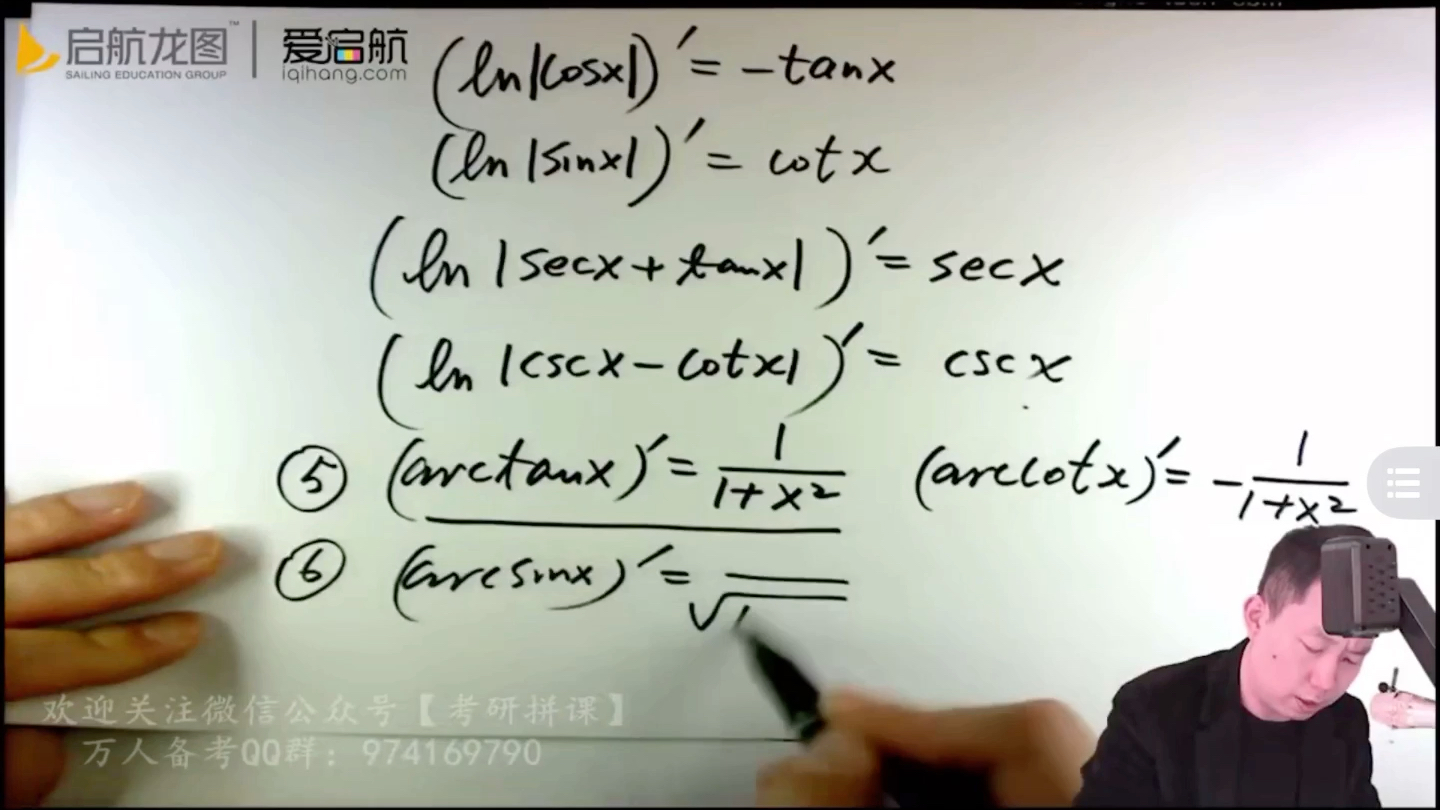 启航龙图™ | 爱启航
SAILING EDUCATION GROUP iqihang.com
(ln|cosx|)′ = -tanx
(ln|sinx|)′ = cotx
(ln|secx+tanx|)′ = secx
(ln|cscx-cotx|)′ = cscx
⑤ (arctanx)′ = 1/(1+x²) (arccotx)′ = -1/(1+x²)
⑥ (arcsinx)′ = √1
欢迎关注微信公众号【考研拼课】
万人备考QQ群：974169790